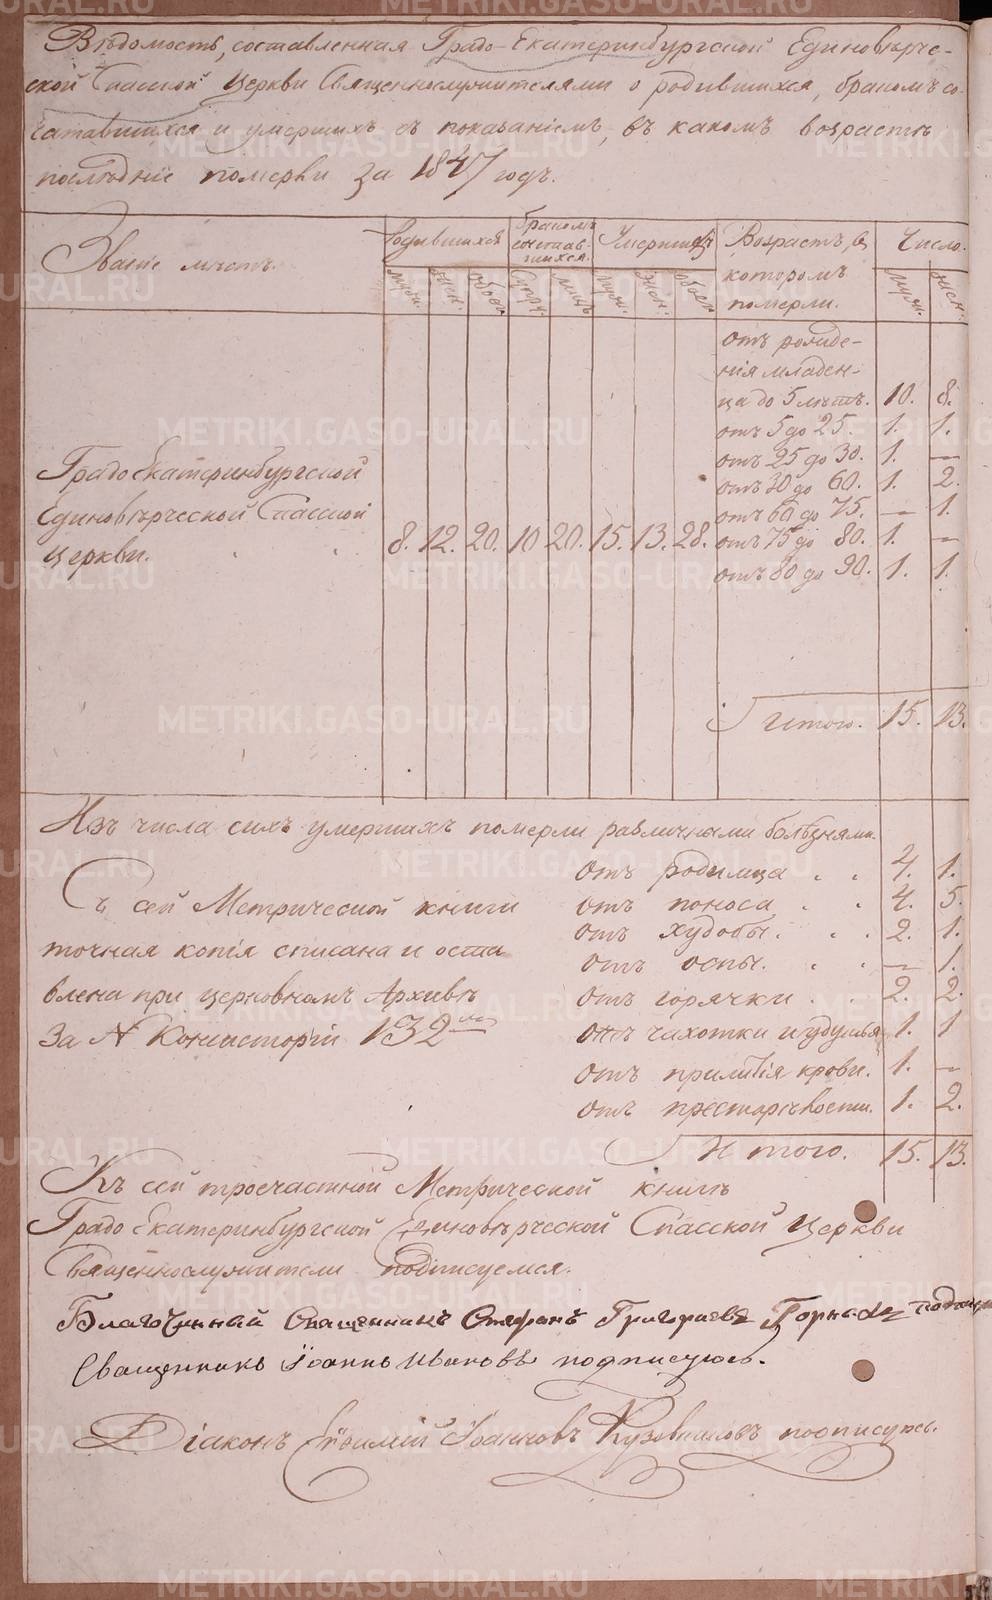 Вѣдомость, составленная Градо-Екатеринбургской Единовѣрче-
ской Спасской Церкви Священнослужителями о родившихся, бракомъ со-
четавшихся и умершихъ съ показаніемъ, въ какомъ возрастѣ
послѣдніе померли за 1847 годъ.
Званіе мѣстъ. Родившихся Бракомъ сочетавшихся. Умершихъ Возрастъ, въ которомъ померли. Число.
муж. жен. обоего муж. жен. обоего муж. жен.
отъ рожде-
нія младен-
ца до 5 лѣтъ. 10. 8.
отъ 5 до 25. 1. 1.
отъ 25 до 30. 1. —
отъ 30 до 60. 1. 2.
отъ 60 до 75. — 1.
отъ 75 до 80. 1. —
отъ 80 до 90. 1. 1.
Градо Екатеринбургской
Единовѣрческой Спасской
Церкви. 8. 12. 20. 10 20. 15. 13. 28.
Итого. 15. 13.
Изъ числа сихъ умершихъ померли различными болѣзнями.
отъ родимца 4. 1.
отъ поноса 4. 5.
отъ худобы. 2. 1.
отъ оспы. — 1.
отъ горячки 2. 2.
отъ чахотки и удушья 1. 1
отъ прилитія крови. 1. —
отъ престарѣлости. 1. 2.
Итого. 15. 13.
Съ сей Метрической книги
точная копія списана и оста
влена при церковномъ Архивѣ
За № Консисторіи 132
Къ сей троечастной Метрической книгѣ
Градо Екатеринбургской Единовѣрческой Спасской Церкви
Священнослужители подписуемся.
Благочинный Священникъ Стефанъ Григорьевъ
Священникъ Іоаннъ Ивановъ подписуюсь.
Діаконъ Евфимій Іоанновъ Кузовниковъ подписуюсь.
METRIKI.GASO-URAL.RU